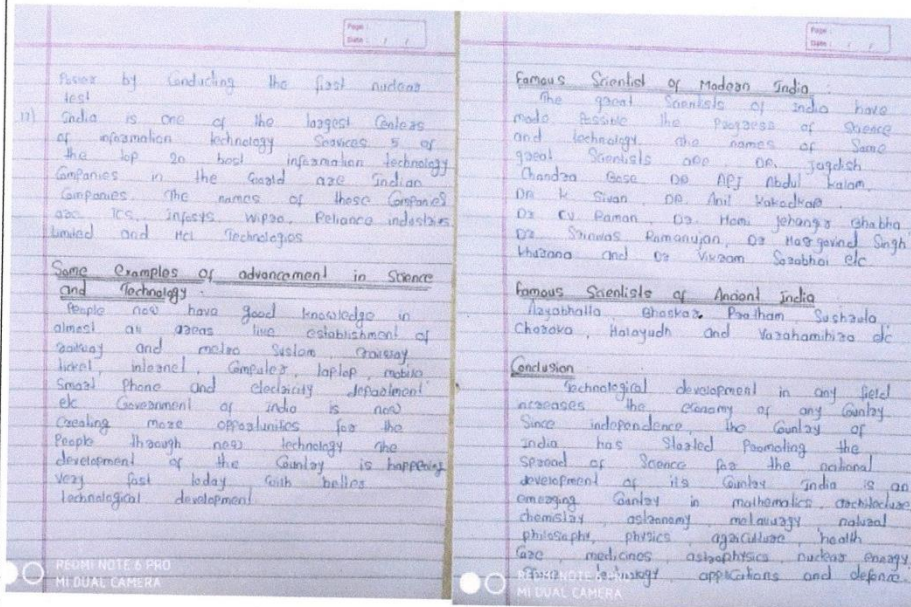 Page :
Date : / /
Power by Conducting the first nuclear
test
12) India is one of the largest Centers
of information technology Services 5 of
the top 20 best information technology
Companies in the World are Indian
Companies. The names of these Companies
are TCS, infosys Wipro, Reliance indestries
Limited and Hcl Technologies
Some Examples of advancement in Science
and Technology :
People now have good knowledge in
almost all areas like establishment of
railway and metro System, railway
ticket, internet, Computer, laptop, mobile
Smart Phone and electricity department
etc Government of India is now
Creating more opportunities for the
People through new technology The
development of the Country is happening
very fast today with better
technological development
REDMI NOTE 6 PRO
MI DUAL CAMERA
Page :
Date : / /
Famous Scientist of Modern India :
The great Scientists of India have
made Possible the Progress of Science
and technology. The names of Some
great Scientists are DR. Jagdish
Chandra Bose DR APJ Abdul Kalam,
DR K Sivan, DR. Anil Kakodkar,
Dr CV Raman, Dr. Homi Jehangir Bhabha
Dr Srinivas Ramanujan, Dr Hargovind Singh
Khurana and Dr Vikram Sarabhai etc
Famous Scientists of Ancient India
Aryabhatta, Bhaskar Pratham Sushruta,
Charaka, Halayudh and Varahamihira etc
Conclusion
Technological development in any field
increases the economy of any Country.
Since independence, the Country of
India has Started Promoting the
Spread of Science for the national
development of its Country India is an
emerging Country in mathematics, architecture
chemistry, astronomy, metallurgy, natural
philosophy, physics, agriculture, health
Care, medicines astrophysics, nuclear energy,
technology, applications and defence.
REDMI NOTE 6 PRO
MI DUAL CAMERA